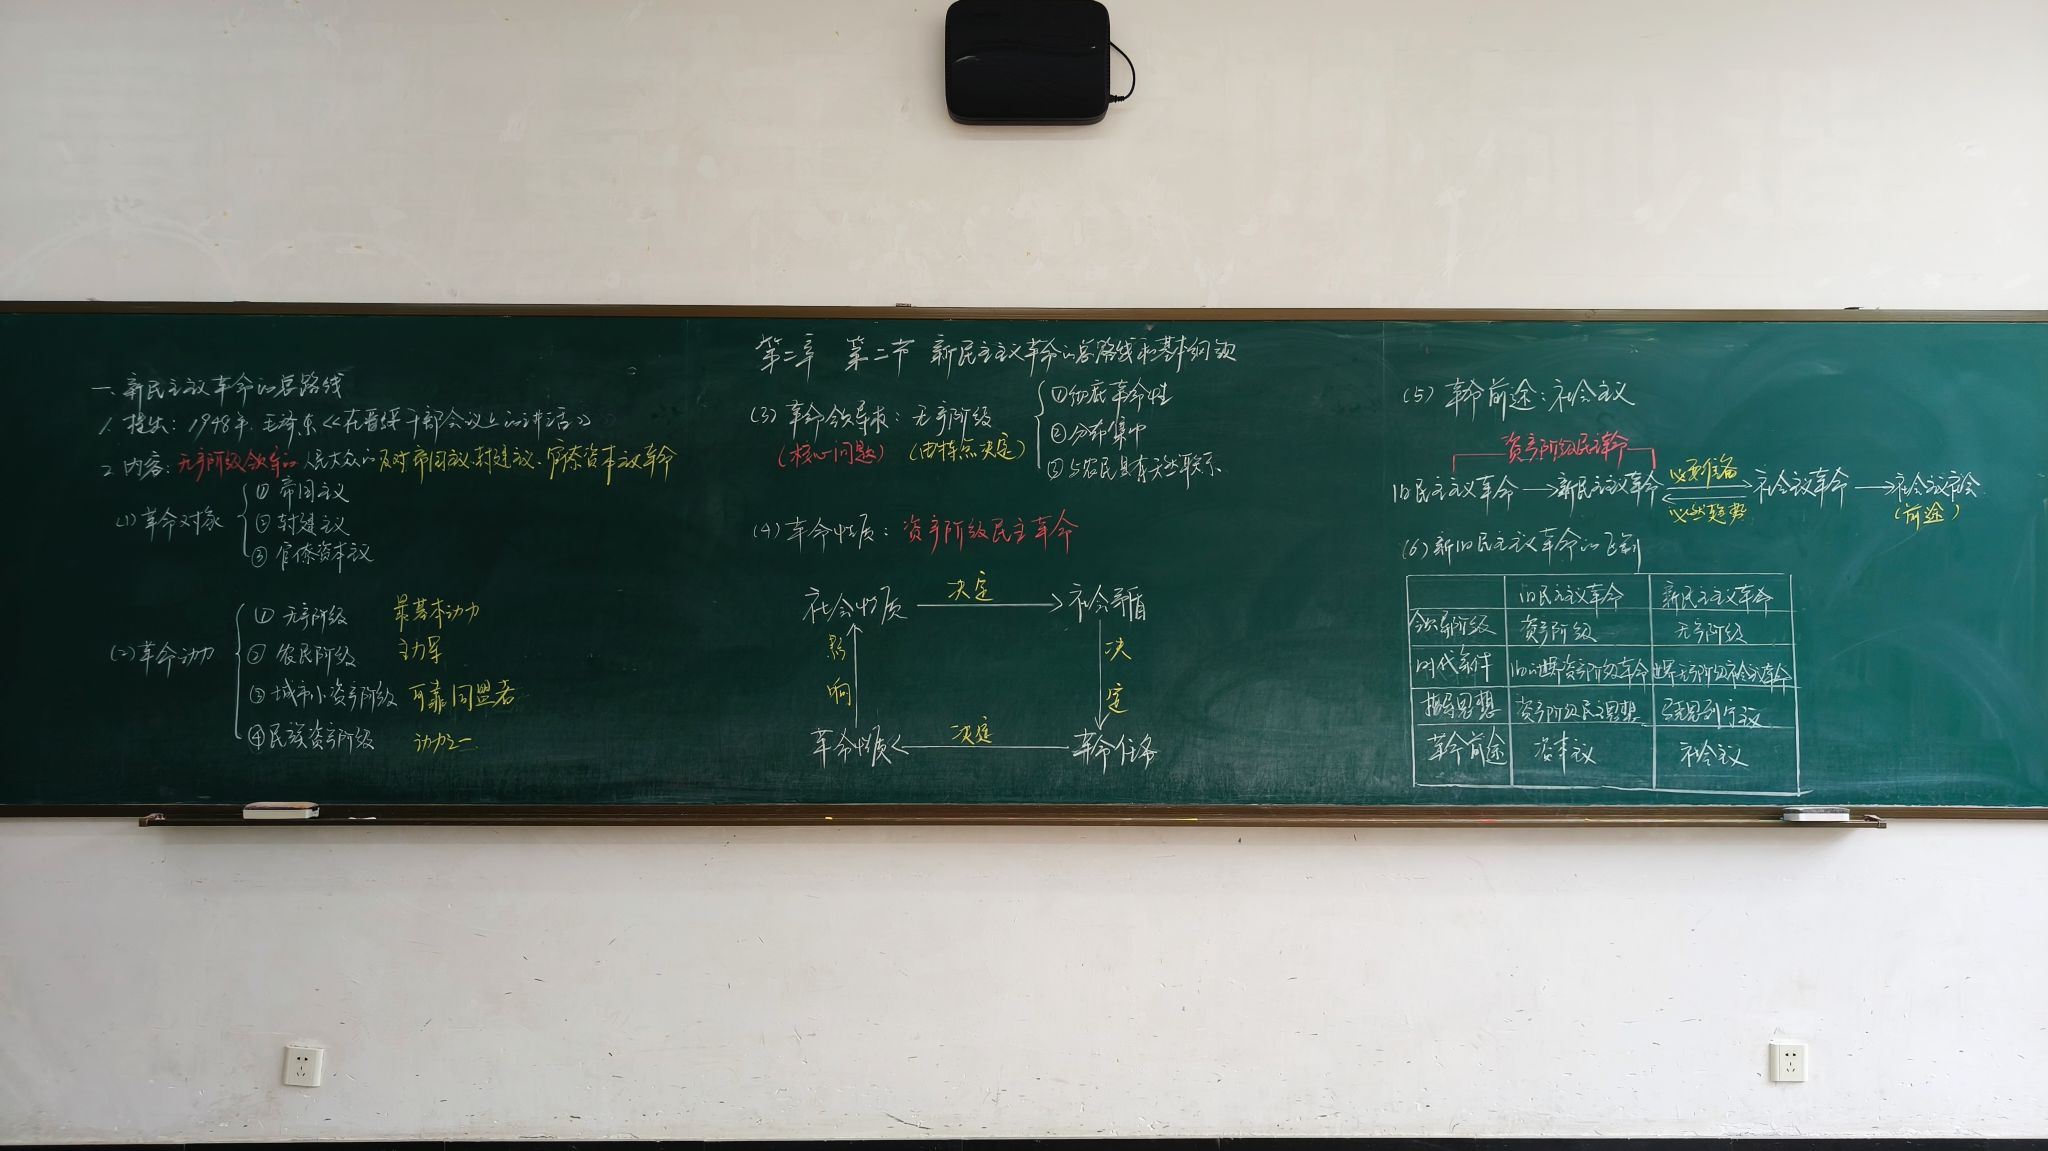 第二章 第二节 新民主主义革命的总路线和基本纲领
一、新民主主义革命的总路线
1. 提出：1948年 毛泽东《在晋绥干部会议上的讲话》
2. 内容：无产阶级领导的人民大众的反对帝国主义、封建主义、官僚资本主义革命
(1) 革命对象
① 帝国主义
② 封建主义
③ 官僚资本主义
(2) 革命动力
① 无产阶级 最基本动力
② 农民阶级 主力军
③ 城市小资产阶级 可靠同盟者
④ 民族资产阶级 动力之一
(3) 革命领导权：无产阶级
(核心问题) (由特点决定)
① 彻底革命性
② 分布集中
③ 与农民具有天然联系
(4) 革命性质：资产阶级民主革命
社会性质 决定 社会矛盾
影响 决定
革命性质 决定 革命任务
(5) 革命前途：社会主义
资产阶级民主革命
旧民主主义革命 → 新民主主义革命 必要准备 必然趋势 社会主义革命 → 社会主义社会
(前途)
(6) 新旧民主主义革命的区别
旧民主主义革命 新民主主义革命
领导阶级 资产阶级 无产阶级
时代条件 旧的世界资产阶级革命 世界无产阶级社会主义革命
指导思想 资产阶级民主思想 马克思列宁主义
革命前途 资本主义 社会主义